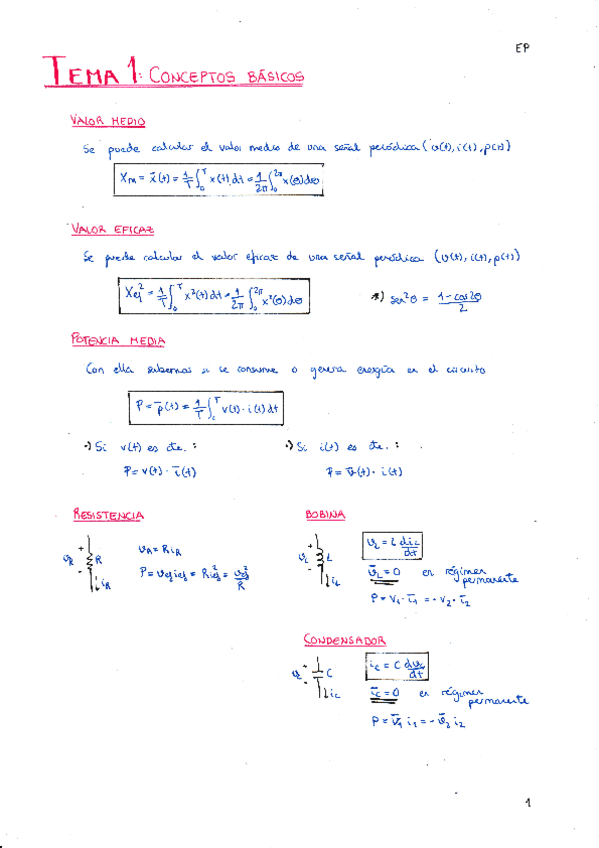 EP
TEMA 1: CONCEPTOS BÁSICOS
VALOR MEDIO
Se puede calcular el valor medio de una señal periódica (v(t), i(t), p(t))
Xm = x̄(t) = 1/T ∫₀ᵀ x(t) dt = 1/2π ∫₀²π x(θ)dθ
VALOR EFICAZ
Se puede calcular el valor eficaz de una señal periódica (v(t), i(t), p(t))
Xef² = 1/T ∫₀ᵀ x²(t) dt = 1/2π ∫₀²π x²(θ)dθ
*) sen²θ = 1-cos2θ/2
POTENCIA MEDIA
Con ella sabemos si se consume o genera energía en el circuito
P = p̄(t) = 1/T ∫₀ᵀ v(t)·i(t)dt
·) Si v(t) es cte.:
·) Si i(t) es cte.:
P = v(t)·ī(t)
P = v̄(t)·i(t)
RESISTENCIA
BOBINA
+
vR
R
-
iR
vR = R iR
P = vef ief = R ief² = vef²/R
+
vL
L
-
iL
vL = L diL/dt
v̄L = 0 en régimen permanente
P = V₁·ī₁ = -V₂·ī₂
CONDENSADOR
+
vc
C
-
ic
ic = C dvc/dt
īc = 0 en régimen permanente
P = v̄₁ i₁ = -v̄₂ i₂
1